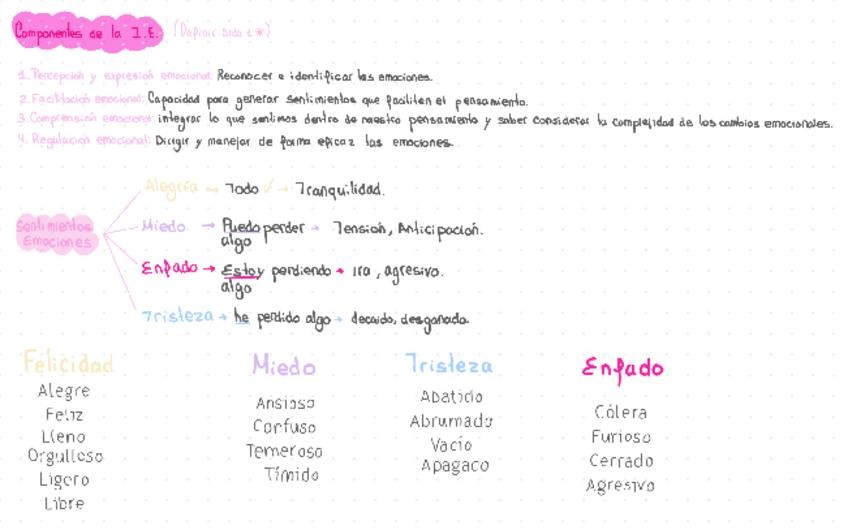 Componentes de la I.E. (Definir cada 1 *)
1. Percepción y expresión emocional: Reconocer e identificar las emociones.
2. Facilitación emocional: Capacidad para generar sentimientos que faciliten el pensamiento.
3. Comprensión emocional: integrar lo que sentimos dentro de nuestro pensamiento y saber considerar la complejidad de los cambios emocionales.
4. Regulación emocional: Dirigir y manejar de forma eficaz las emociones.
Sentimientos
Emociones
Alegría → Todo ✓ → Tranquilidad.
Miedo → Puedo perder → Tensión, Anticipación.
algo
Enfado → Estoy perdiendo → Ira, agresivo.
algo
Tristeza → he perdido algo → decaido, desganado.
Felicidad
Alegre
Feliz
Lleno
Orgulloso
Ligero
Libre
Miedo
Ansioso
Confuso
Temeroso
Tímido
Tristeza
Abatido
Abrumado
Vacío
Apagado
Enfado
Cólera
Furioso
Cerrado
Agresivo